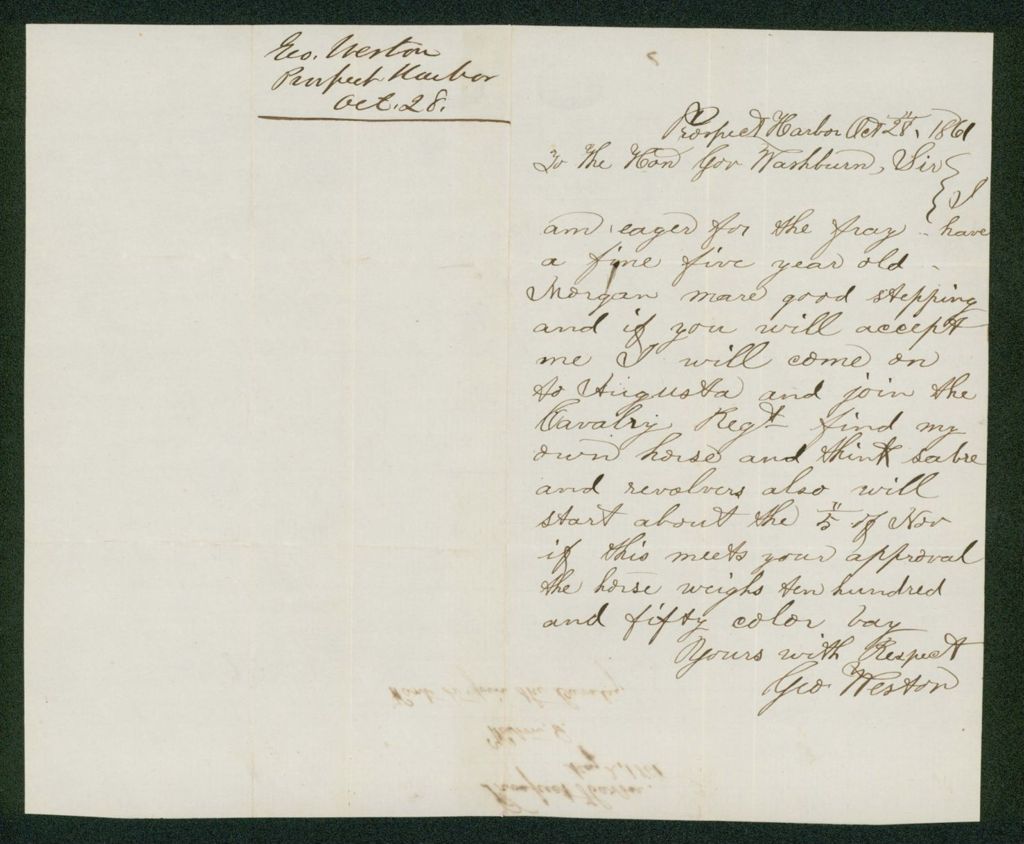 Geo. Weston
Prospect Harbor
Oct. 28.
Prospect Harbor Oct 28", 1861
To the Hon Gov Washburn, Sir } I
am eager for the fray - have
a fine five year old -
Morgan mare good stepping
and if you will accept
me I will come on
to Augusta and join the
Cavalry Regt find my
own horse and think sabre
and revolvers also will
start about the 5" of Nov
if this meets your approval
the horse weighs ten hundred
and fifty color bay
Yours with Respect
Geo Weston